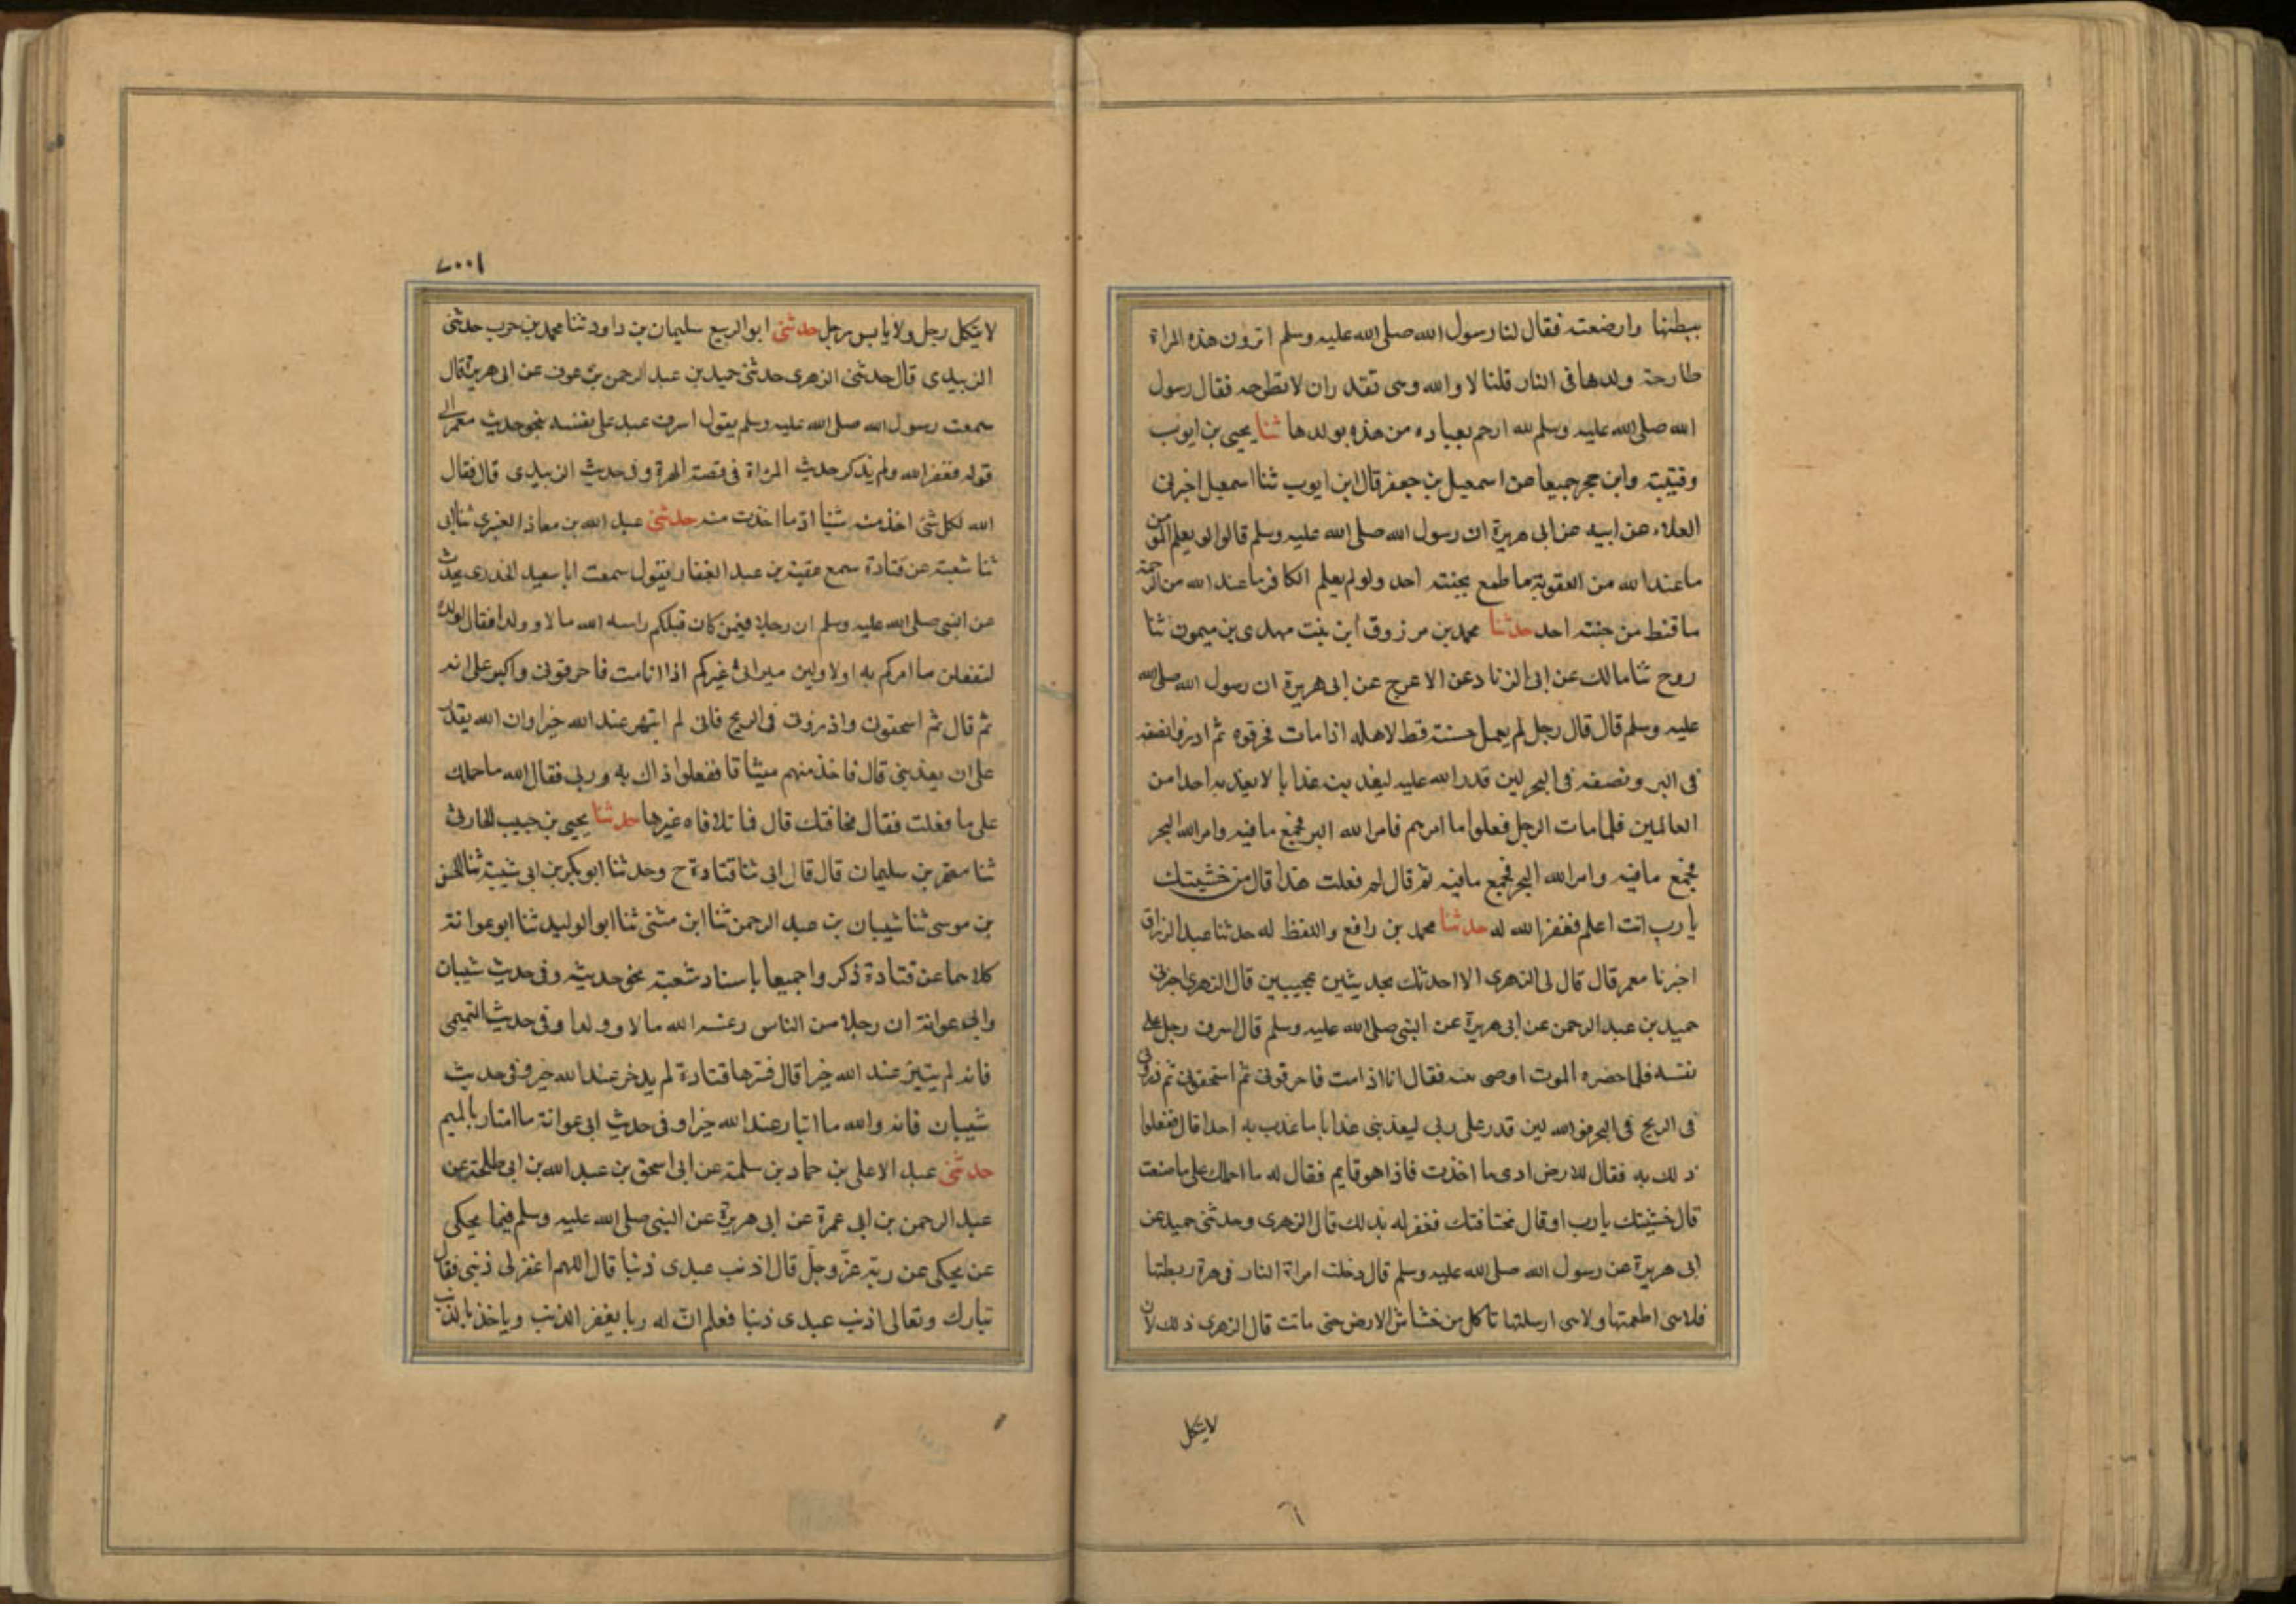 ببطنها وارضعته فقال لنا رسول الله صلى الله عليه وسلم اترون هذه المراة
طارحة ولدها فى النار قلنا لا والله وهى تقدر ان لا تطرحه فقال رسول
الله صلى الله عليه وسلم لله ارحم بعباده من هذه بولدها ثنا يحيى بن ايوب
وقتيبة وابن حجر جميعا عن اسمعيل بن جعفر قال ابن ايوب ثنا اسمعيل اخبرنى
العلاء عن ابيه عن ابى هريرة ان رسول الله صلى الله عليه وسلم قالوا لو يعلم المومن
ما عند الله من العقوبة ما طمع بجنته احد ولو لم يعلم الكافر ما عند الله من الرحمة
ما قنط من جنته احد حدثنا محمد بن مرزوق ابن بنت مهدى بن ميمون ثنا
روح ثنا مالك عن ابى الزناد عن الاعرج عن ابى هريرة ان رسول الله صلى الله
عليه وسلم قال قال رجل لم يعمل حسنة قط لاهله اذا مات فحرقوه ثم اذروا نصفه
فى البر ونصفه فى البحر لين قدر الله عليه ليعذبن عذابا لا يعذبه احدا من
العالمين فلما مات الرجل فعلوا ما امرهم فامر الله البر فجمع ما فيه وامر الله البحر
فجمع ما فيه وامر الله البحر فجمع ما فيه ثم قال لم فعلت هذا قال من خشيتك
يا رب انت اعلم فغفر الله له حدثنا محمد بن رافع واللفظ له حدثنا عبد الرزاق
اخبرنا معمر قال قال لى الزهرى الا احدثك بحديثين عجيبين قال الزهرى اخبرنى
حميد بن عبد الرحمن عن ابى هريرة عن النبى صلى الله عليه وسلم قال اسرف رجل على
نفسه فلما حضره الموت اوصى بنيه فقال انا اذا مت فاحرقونى ثم اسحقونى ثم ذرونى
فى الريح فى البحر فوالله لين قدر على ربى ليعذبنى عذابا ما عذب به احدا قال ففعلوا
ذلك به فقال للارض ادى ما اخذت فاذا هو قايم فقال له ما احملك على ما صنعت
قال خشيتك يا رب او قال مخافتك فغفر له بذلك قال الزهرى وحدثنى حميد عن
ابى هريرة عن رسول الله صلى الله عليه وسلم قال دخلت امراة النار فى هرة ربطتها
فلا هى اطعمتها ولا هى ارسلتها تاكل من خشاش الارض حتى ماتت قال الزهرى ذلك لان
لا يتكل
٦
١٠٠٧
لا يتكل رجل ولا ييابس رجل حدثنى ابو الربيع سليمان بن داود ثنا محمد بن حرب حدثنى
الزبيدى قال حدثنى الزهرى حدثنى حميد بن عبد الرحمن بن عوف عن ابى هريرة قال
سمعت رسول الله صلى الله عليه وسلم يقول اسرف عبد على نفسه بنحو حديث معمر الى
قوله فغفر الله ولم يذكر حديث المراة فى قصة الهرة وفى حديث الزبيدى قال فقال
الله لكل شئ اخذ منه شيئا اد ما اخذت منه حدثنى عبد الله بن معاذ العنبرى ثنا ابى
ثنا شعبة عن قتادة سمع عقبة بن عبد الغفار يقول سمعت ابا سعيد الخدرى يحدث
عن النبى صلى الله عليه وسلم ان رجلا فيمن كان قبلكم راسه الله مالا وولدا فقال لولده
لتفعلن ما امركم به او لاولين ميراثى غيركم اذا انا مت فاحرقونى واكبر على انه
ثم قال ثم اسحقونى واذرونى فى الريح فانى لم ابتهر عند الله خيرا وان الله يقدر
على ان يعذبنى قال فاخذ منهم ميثاقا ففعلوا ذاك به وربى فقال الله ما حملك
على ما فعلت فقال مخافتك قال فما تلافاه غيرها حدثنا يحيى بن حبيب الحارثى
ثنا معتمر بن سليمان قال قال ابى ثنا قتادة ح وحدثنا ابو بكر بن ابى شيبة ثنا الحسن
بن موسى ثنا شيبان بن عبد الرحمن ثنا ابن مثنى ثنا ابو الوليد ثنا ابو عوانة
كلاهما عن قتادة ذكروا جميعا باسناد شعبة نحو حديثه وفى حديث شيبان
وابى عوانة ان رجلا من الناس رغسه الله مالا وولدا وفى حديث التيمى
فانه لم يبتئر عند الله خيرا قال فسرها قتادة لم يدخر عند الله خيرا وفى حديث
شيبان فانه والله ما ابتار عند الله خيرا وفى حديث ابى عوانة ما امتار بالميم
حدثنى عبد الاعلى بن حماد بن سلمة عن ابى اسحق بن عبد الله بن ابى طلحة عن
عبد الرحمن بن ابى عمرة عن ابى هريرة عن النبى صلى الله عليه وسلم فيما يحكى
عن يحكى عن ربه عز وجل قال اذنب عبدى ذنبا قال اللهم اغفر لى ذنبى فقال
تبارك وتعالى اذنب عبدى ذنبا فعلم ان له ربا يغفر الذنب وياخذ بالذنب